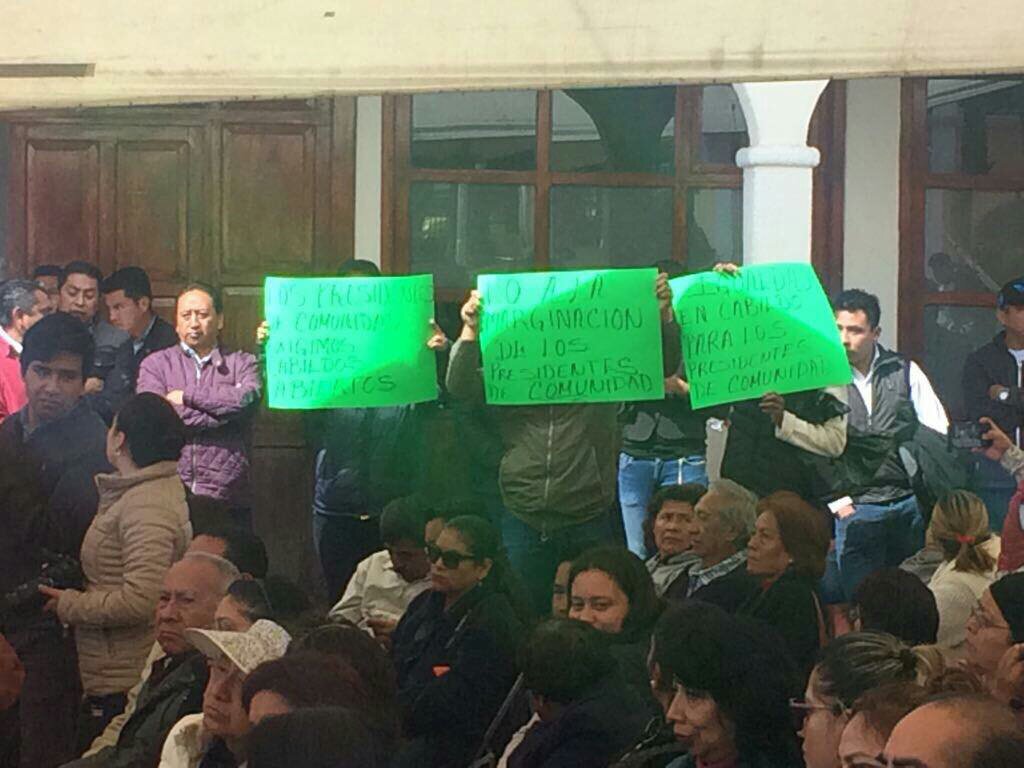 LOS PRESIDENTES
DE COMUNIDAD
EXIGIMOS
CABILDOS
ABIERTOS
NO A LA
MARGINACION
DE LOS
PRESIDENTES
DE COMUNIDAD
IGUALDAD
EN CABILDOS
PARA LOS
PRESIDENTES
DE COMUNIDAD